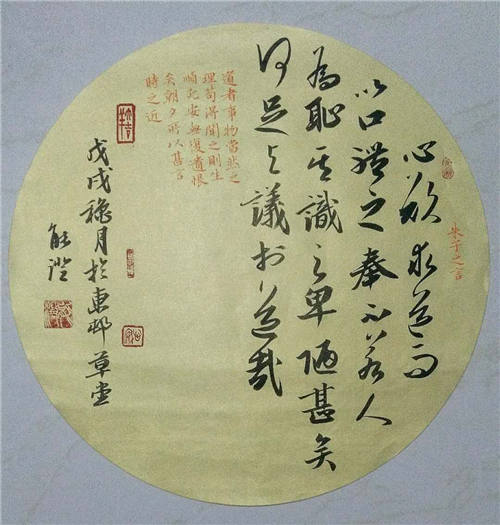 心欲求道而
以口體之奉不若人
為恥其識之卑陋甚矣
何足与議於道哉
朱子之言
道者事物當然之
理苟得聞之則生
順死安無復遺恨
矣朝夕所以甚言
時之近
戊戌月於東邨草堂
能澄